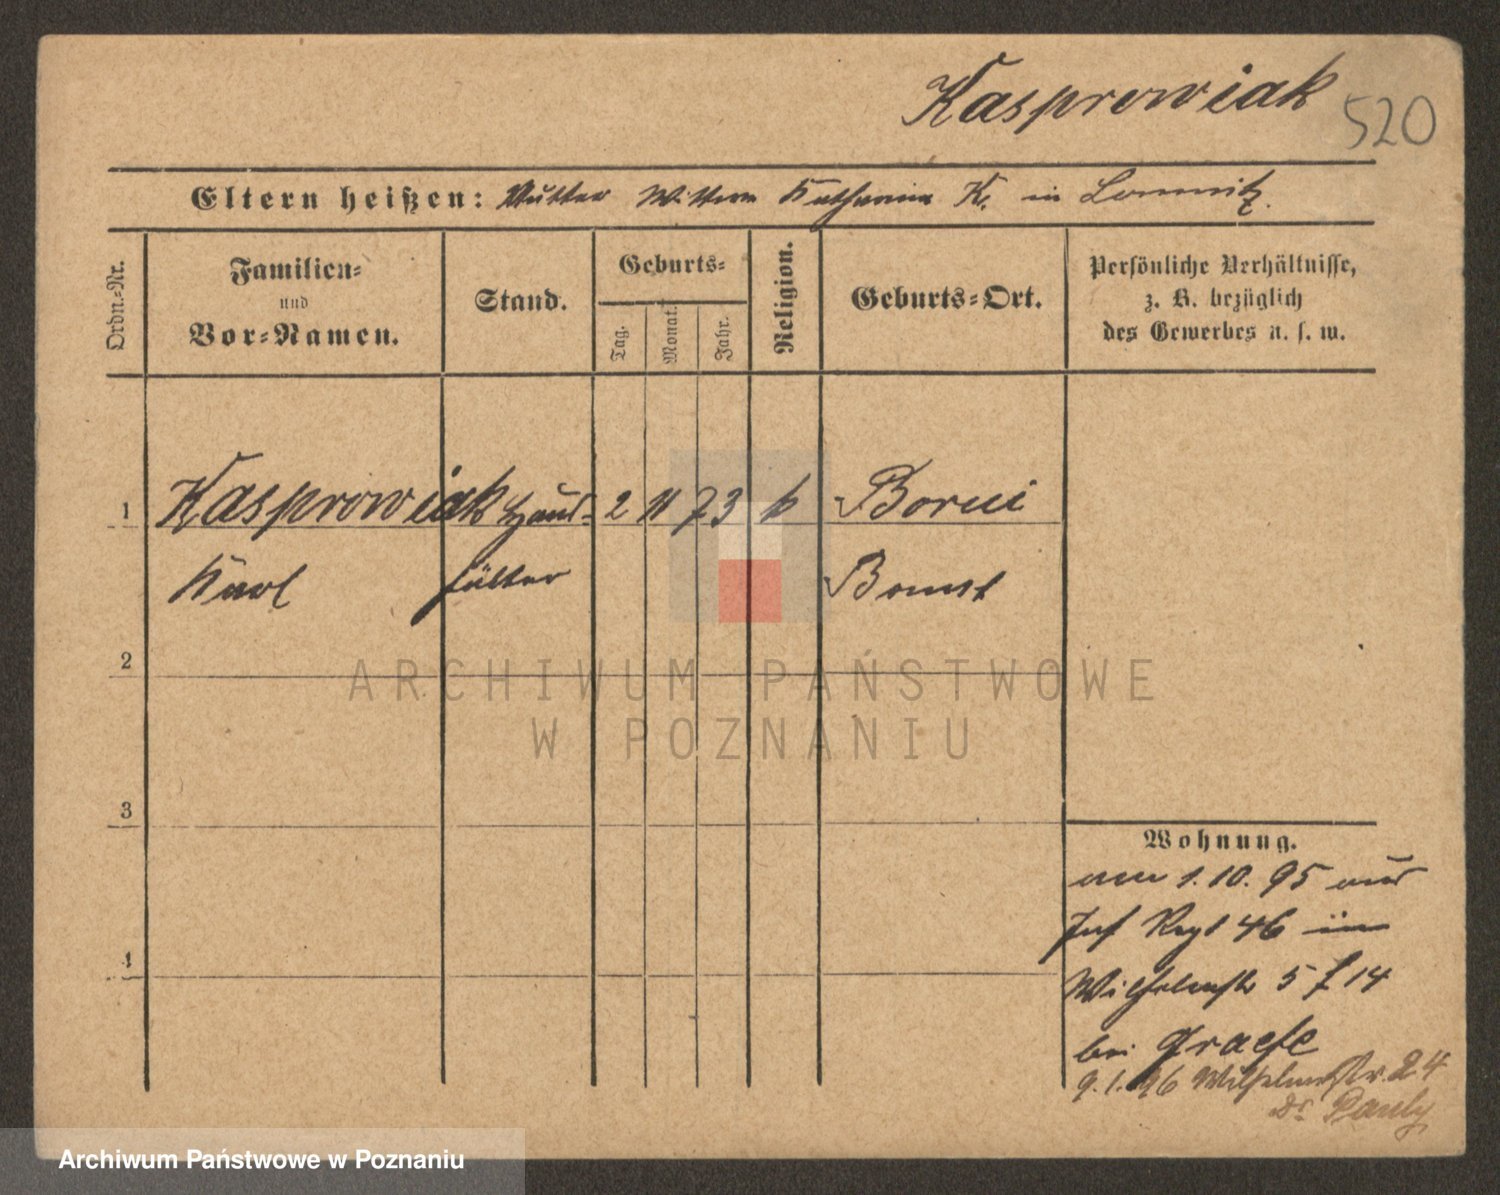 Kasprowiak 520
Eltern heißen: Mutter Wittwe Katharina K. in Lomnitz.
Ordn.-Nr.
Familien-
und
Vor-Namen.
Stand.
Geburts-
Tag.
Monat.
Jahr.
Religion.
Geburts-Ort.
Persönliche Verhältnisse,
z. B. bezüglich
des Gewerbes u. s. w.
1 Kasprowiak Haus- 2 11 73 k Borui
Karl hälter Bomst
2
ARCHIWUM PAŃSTWOWE
W POZNANIU
3
Wohnung.
am 1.10.95 aus
Inf Regt 46 in
4
Wilhelmstr 5 f 14
bei Graefe
9.1.96 Wilhelmstr. 24
Dr. Pauly
Archiwum Państwowe w Poznaniu